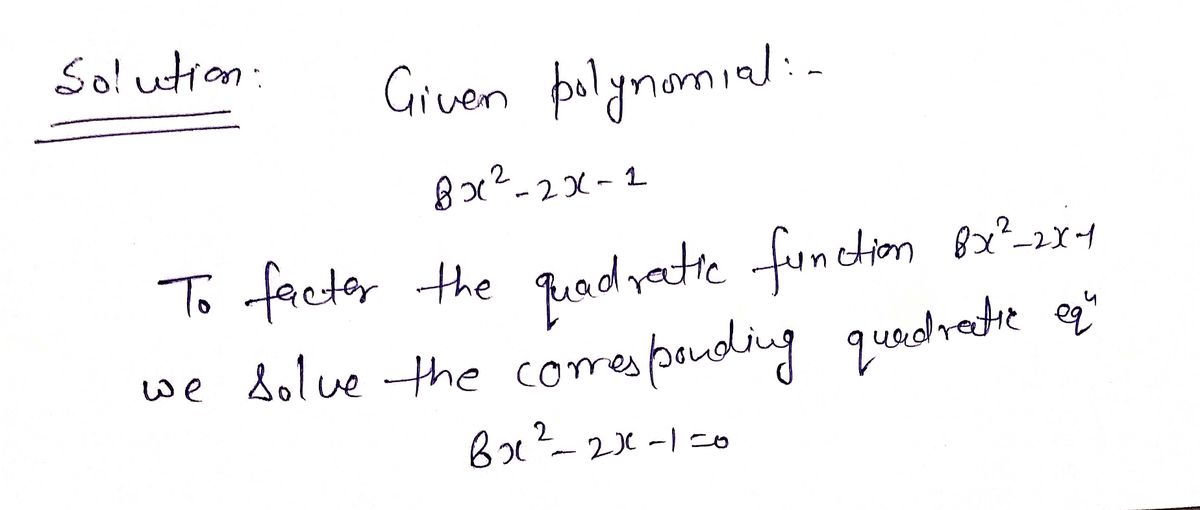 Solution: Given polynomial:-
8x²-2x-1
To factor the quadratic function 8x²-2x-1
we solve the corresponding quadratic eqⁿ
8x²-2x-1=0